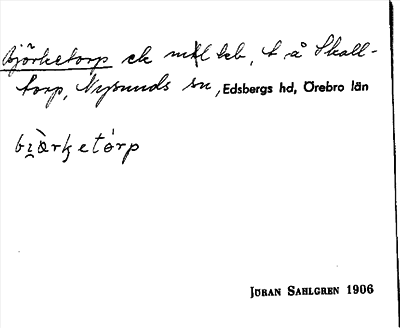 Björketorp ek mtl lib, t å Skall-
torp, Nysunds sn, Edsbergs hd, Örebro län
bi̯ärketórp
JÖRAN SAHLGREN 1906